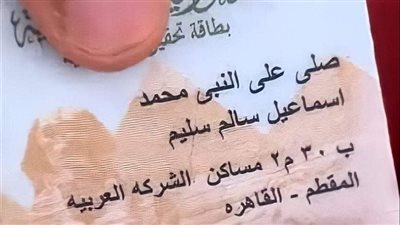 بطاقة تحقيق
صلى على النبى محمد
اسماعيل سالم سليم
ب ٣٠ م٢ مساكن الشركه العربيه
المقطم - القاهره